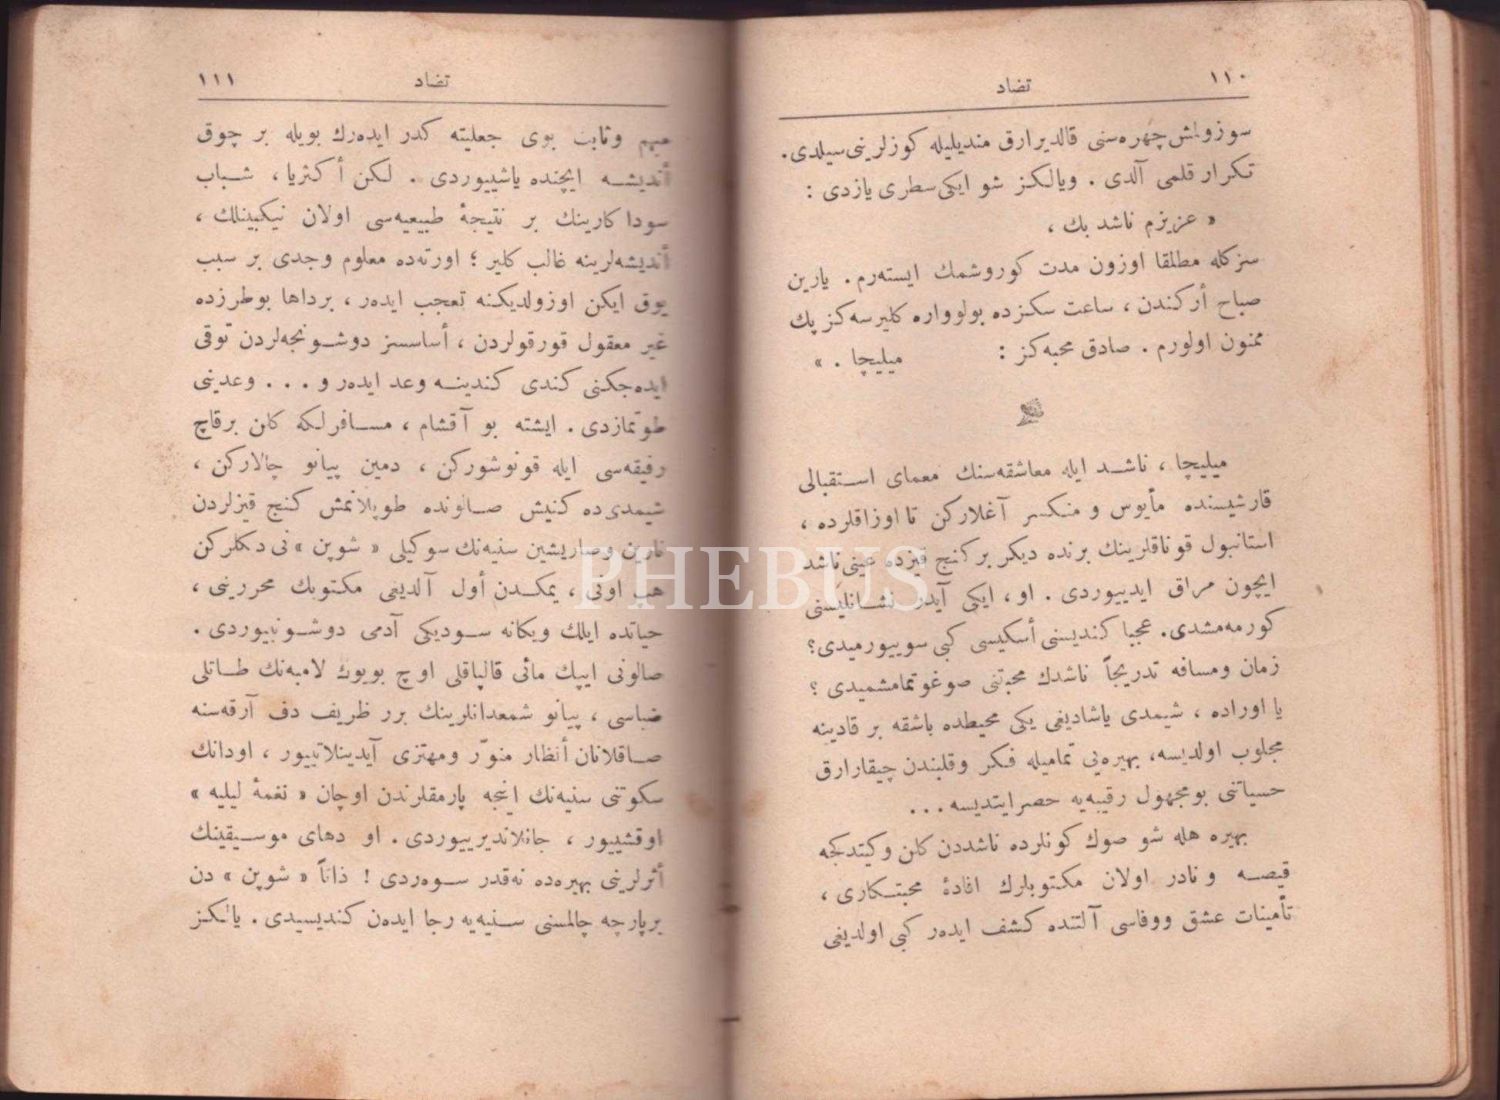 ١١٠
تضاد
سوزولمش چهره‌سنی قالدیرارق مندیلیله كوزلرینی سیلدی.
تكرار قلمی آلدی . ویالكز شو ایكی سطری یازدی :
« عزیزم ناشد بك ،
سزكله مطلقا اوزون مدت كوروشمك ایسته‌رم . یارین
صباح أركندن ، ساعت سكزده بولوواره كلیرسه‌كز پك
ممنون اولورم . صادق محبه‌كز : میلیچا . »
میلیچا ، ناشد ایله معاشقه‌سنك معمای استقبالی
قارشیسنده مأیوس و منكسر آغلاركن تا اوزاقلرده ،
استانبول قوناقلرینك برنده دیكر بر كنج قیزده عینی ناشد
ایچون مراق ایدییوردی . او ، ایكی آیدر نشانلیسنی
كورمه‌مشدی. عجبا كندیسنی أسكیسی كبی سوییورمیدی؟
زمان ومسافه تدریجاً ناشدك محبتنی صوغوتمامشمیدی ؟
یا اوراده ، شیمدی یاشادیغی یكی محیطده باشقه بر قادینه
مجلوب اولدیسه، بهیره‌یی تمامیله فكر وقلبندن چیقارارق
حسیاتنی بومجهول رقیبه‌یه حصر ایتدیسه ...
بهیره هله شو صوك كونلرده ناشددن كلن وكیتدكجه
قیصه و نادر اولان مكتوبلرك افادهٔ محبتكاری ،
تأمینات عشق ووفاسی آلتنده كشف ایده‌ر كبی اولدیغی
١١١
تضاد
مبهم وثابت بوی جعلیته كدر ایده‌رك بویله بر چوق
أندیشه ایچنده یاشییوردی . لكن أكثریا ، شباب
سوداكارینك بر نتیجهٔ طبیعیه‌سی اولان نیكبینلك ،
أندیشه‌لرینه غالب كلیر ؛ اورته‌ده معلوم وجدی بر سبب
یوق ایكن اوزولدیكنه تعجب ایده‌ر ، برداها بوطرزده
غیر معقول قورقولردن ، أساسسز دوشونجه‌لردن توقی
ایده‌جكنی كندی كندینه وعد ایده‌ر و ... وعدینی
طوتمازدی . ایشته بو آقشام ، مسافرلكه كلن برقاچ
رفیقه‌سی ایله قونوشوركن ، دمین پیانو چالاركن ،
شیمدی‌ده كنیش صالونده طوپلانمش كنج قیزلردن
نارین وصاریشین سنیه‌نك سوكیلی « شوپن »نی دكلركن
هپ اونی ، یمكدن أول آلدیغی مكتوبك محررینی ،
حیاتده ایلك ویكانه سودیكی آدمی دوشونییوردی .
صالونی ایپك مائی قالپاقلی اوچ بویوك لامبه‌نك طاتلی
ضیاسی ، پیانو شمعدانلرینك برر ظریف دف آرقه‌سنه
صاقلانان أنظار منوّر ومهتزی آیدینلاتییور ، اودانك
سكوتنی سنیه‌نك اینجه پارمقلرندن اوچان « نغمهٔ لیلیه »
اوقشییور ، جانلاندیرییوردی . او دهای موسیقینك
أثرلرینی بهیره‌ده نه‌قدر سوه‌ردی ! ذاتاً « شوپن » دن
برپارچه چالمسنی سنیه‌یه رجا ایده‌ن كندیسیدی . یالكز
PHEBUS